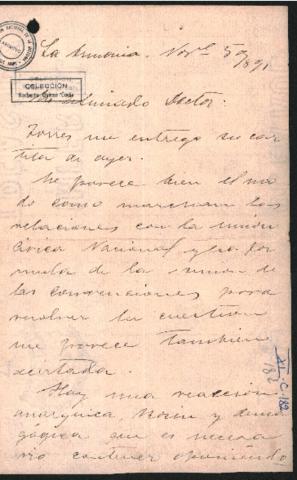 La Armonia. Nov. 5/891
COLECCIÓN
Mi estimado Doctor:
Torres me entregó su car
tita de ayer.
Me parece bien el mo
do como marchan las
relaciones con la Unión
Cívica Nacional y la for
mula de la reunion de
las convenciones para
resolver la cuestion
me parece tambien
acertada.
Hay una reaccion
anarquica, y dema
gógica que es necesa
rio contener oponiendo